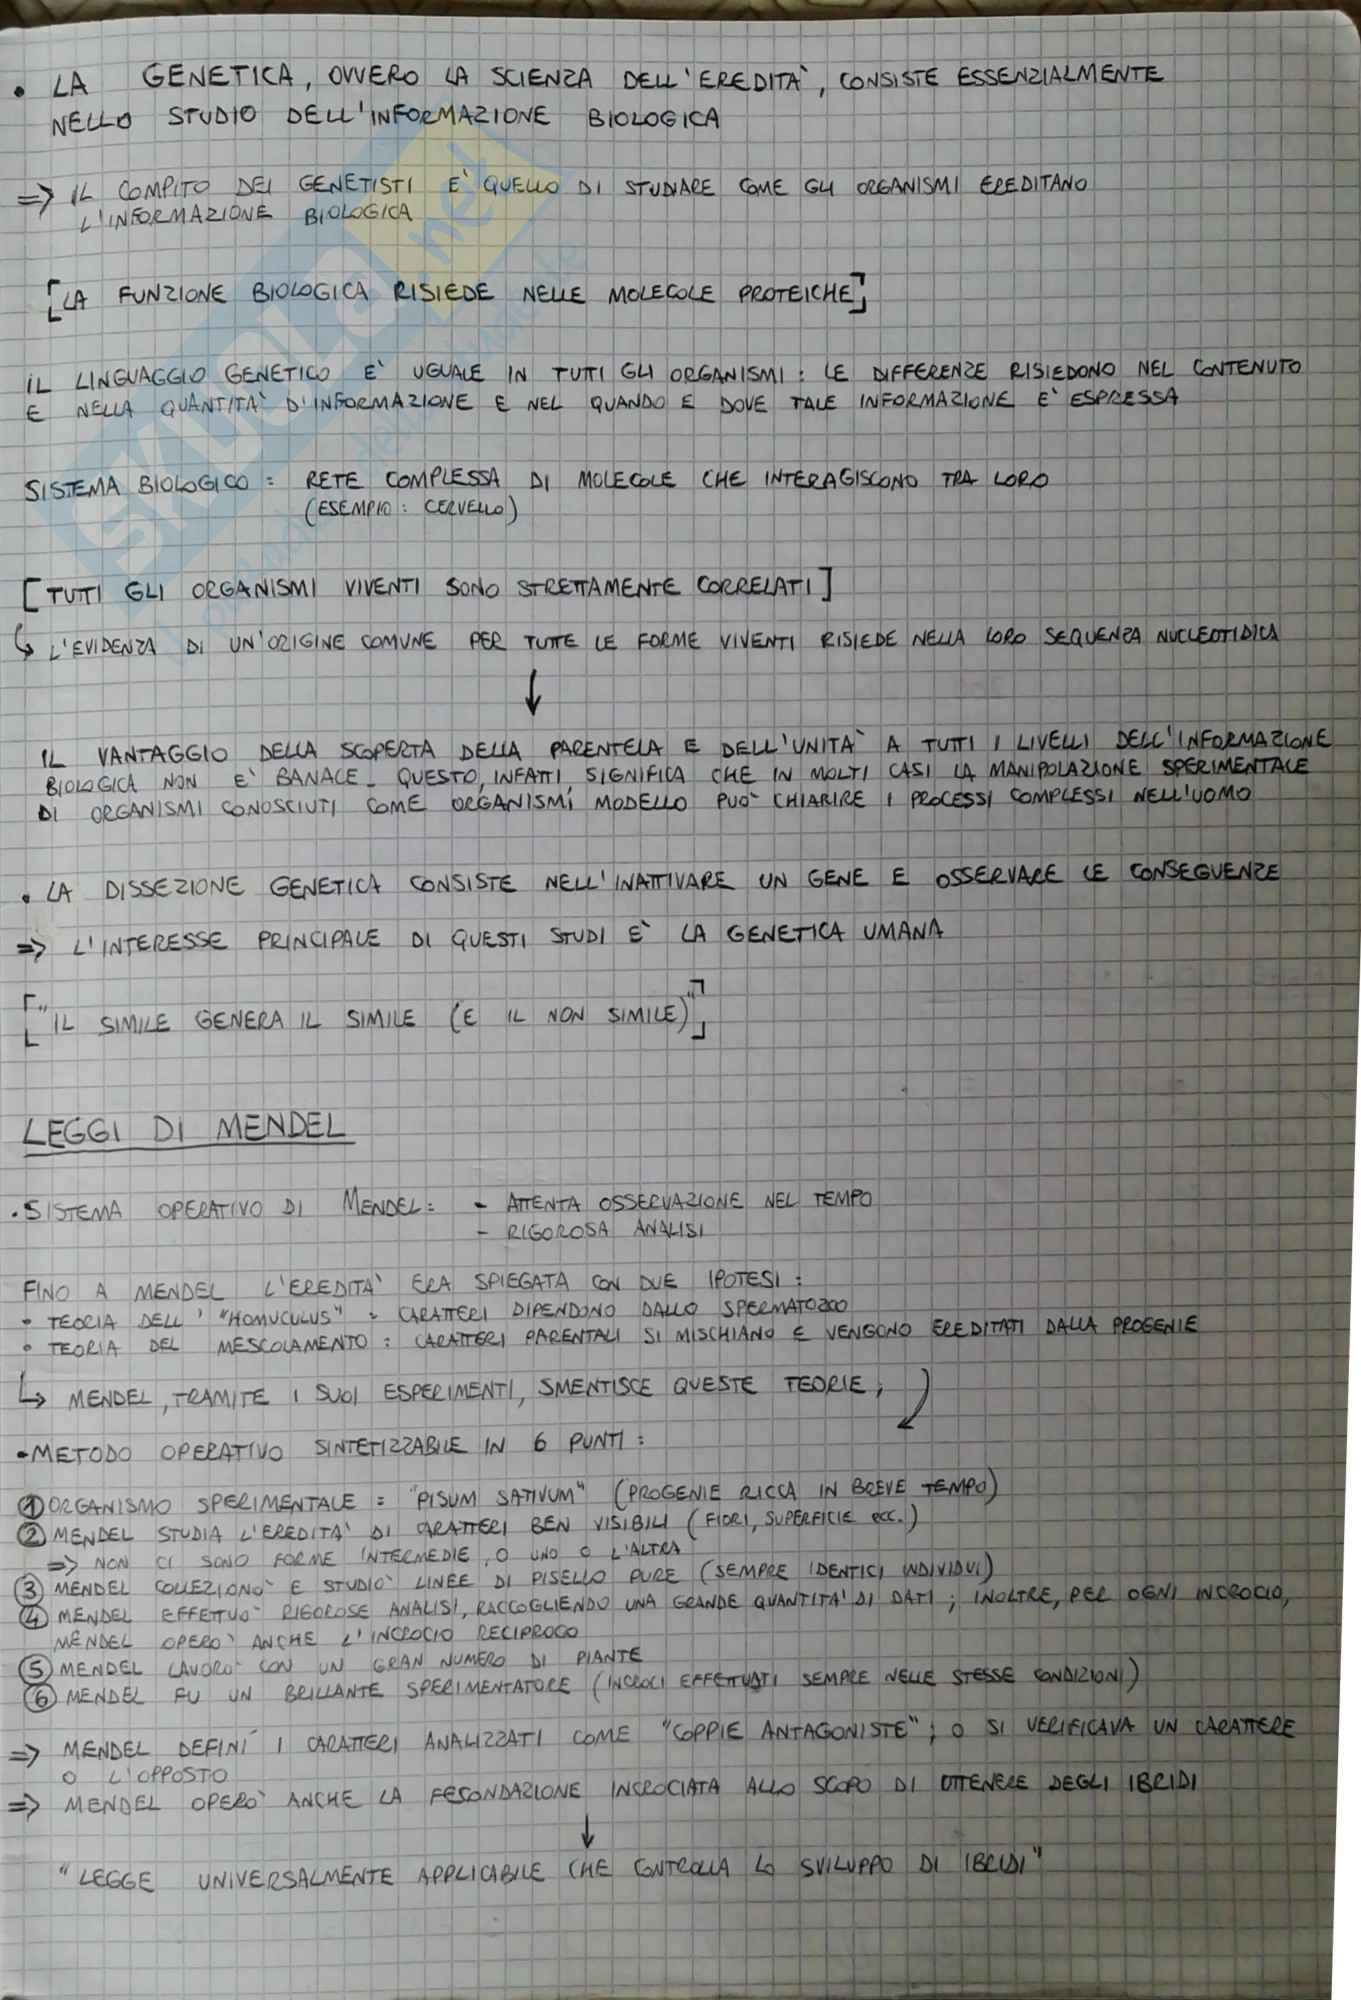 • LA GENETICA, OVVERO LA SCIENZA DELL'EREDITÀ, CONSISTE ESSENZIALMENTE
NELLO STUDIO DELL'INFORMAZIONE BIOLOGICA
=> IL COMPITO DEI GENETISTI E' QUELLO DI STUDIARE COME GLI ORGANISMI EREDITANO
L'INFORMAZIONE BIOLOGICA
[LA FUNZIONE BIOLOGICA RISIEDE NELLE MOLECOLE PROTEICHE]
IL LINGUAGGIO GENETICO E' UGUALE IN TUTTI GLI ORGANISMI: LE DIFFERENZE RISIEDONO NEL CONTENUTO
E NELLA QUANTITA' D'INFORMAZIONE E NEL QUANDO E DOVE TALE INFORMAZIONE E' ESPRESSA
SISTEMA BIOLOGICO = RETE COMPLESSA DI MOLECOLE CHE INTERAGISCONO TRA LORO
(ESEMPIO: CERVELLO)
[TUTTI GLI ORGANISMI VIVENTI SONO STRETTAMENTE CORRELATI]
↳ L'EVIDENZA DI UN'ORIGINE COMUNE PER TUTTE LE FORME VIVENTI RISIEDE NELLA LORO SEQUENZA NUCLEOTIDICA
↓
IL VANTAGGIO DELLA SCOPERTA DELLA PARENTELA E DELL'UNITA' A TUTTI I LIVELLI DELL'INFORMAZIONE
BIOLOGICA NON E' BANALE. QUESTO, INFATTI, SIGNIFICA CHE IN MOLTI CASI LA MANIPOLAZIONE SPERIMENTALE
DI ORGANISMI CONOSCIUTI COME ORGANISMI MODELLO PUO' CHIARIRE I PROCESSI COMPLESSI NELL'UOMO
• LA DISSEZIONE GENETICA CONSISTE NELL'INATTIVARE UN GENE E OSSERVARE LE CONSEGUENZE
=> L'INTERESSE PRINCIPALE DI QUESTI STUDI E' LA GENETICA UMANA
["IL SIMILE GENERA IL SIMILE (E IL NON SIMILE)"]
LEGGI DI MENDEL
• SISTEMA OPERATIVO DI MENDEL: - ATTENTA OSSERVAZIONE NEL TEMPO
- RIGOROSA ANALISI
FINO A MENDEL L'EREDITA' ERA SPIEGATA CON DUE IPOTESI:
• TEORIA DELL' "HOMUCULUS" = CARATTERI DIPENDONO DALLO SPERMATOZOO
• TEORIA DEL MESCOLAMENTO: CARATTERI PARENTALI SI MISCHIANO E VENGONO EREDITATI DALLA PROGENIE
↳ MENDEL, TRAMITE I SUOI ESPERIMENTI, SMENTISCE QUESTE TEORIE;
• METODO OPERATIVO SINTETIZZABILE IN 6 PUNTI:
① ORGANISMO SPERIMENTALE = "PISUM SATIVUM" (PROGENIE RICCA IN BREVE TEMPO)
② MENDEL STUDIA L'EREDITA' DI CARATTERI BEN VISIBILI (FIORI, SUPERFICIE ECC.)
=> NON CI SONO FORME INTERMEDIE, O UNO O L'ALTRA
③ MENDEL COLLEZIONO' E STUDIO' LINEE DI PISELLO PURE (SEMPRE IDENTICI INDIVIDUI)
④ MENDEL EFFETTUO' RIGOROSE ANALISI, RACCOGLIENDO UNA GRANDE QUANTITA' DI DATI; INOLTRE, PER OGNI INCROCIO,
MENDEL OPERO' ANCHE L'INCROCIO RECIPROCO
⑤ MENDEL LAVORO' CON UN GRAN NUMERO DI PIANTE
⑥ MENDEL FU UN BRILLANTE SPERIMENTATORE (INCROCI EFFETTUATI SEMPRE NELLE STESSE CONDIZIONI)
=> MENDEL DEFINÍ I CARATTERI ANALIZZATI COME "COPPIE ANTAGONISTE"; O SI VERIFICAVA UN CARATTERE
O L'OPPOSTO
=> MENDEL OPERO' ANCHE LA FECONDAZIONE INCROCIATA ALLO SCOPO DI OTTENERE DEGLI IBRIDI
↓
"LEGGE UNIVERSALMENTE APPLICABILE CHE CONTROLLA LO SVILUPPO DI IBRIDI"
SKUOLA.net